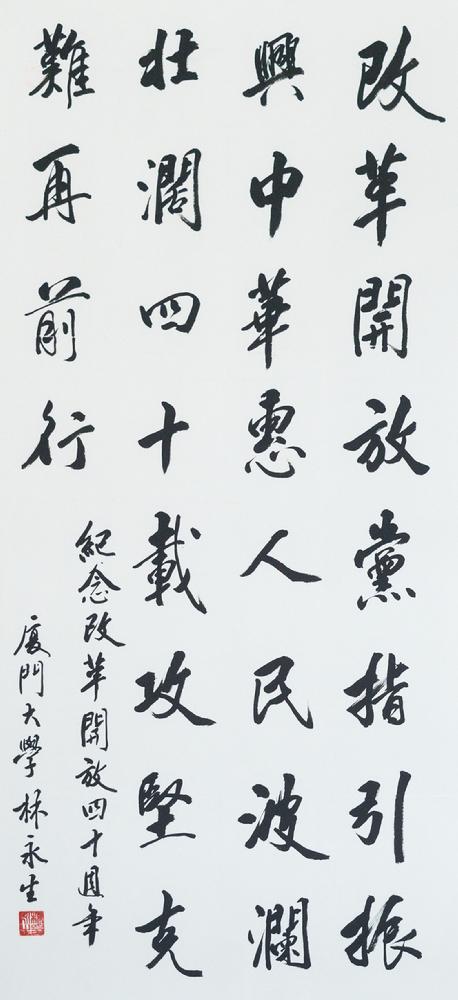 改革開放黨指引振
興中華惠人民波瀾
壯濶四十載攻堅克
難再前行
紀念改革開放四十週年
廈門大學林永生